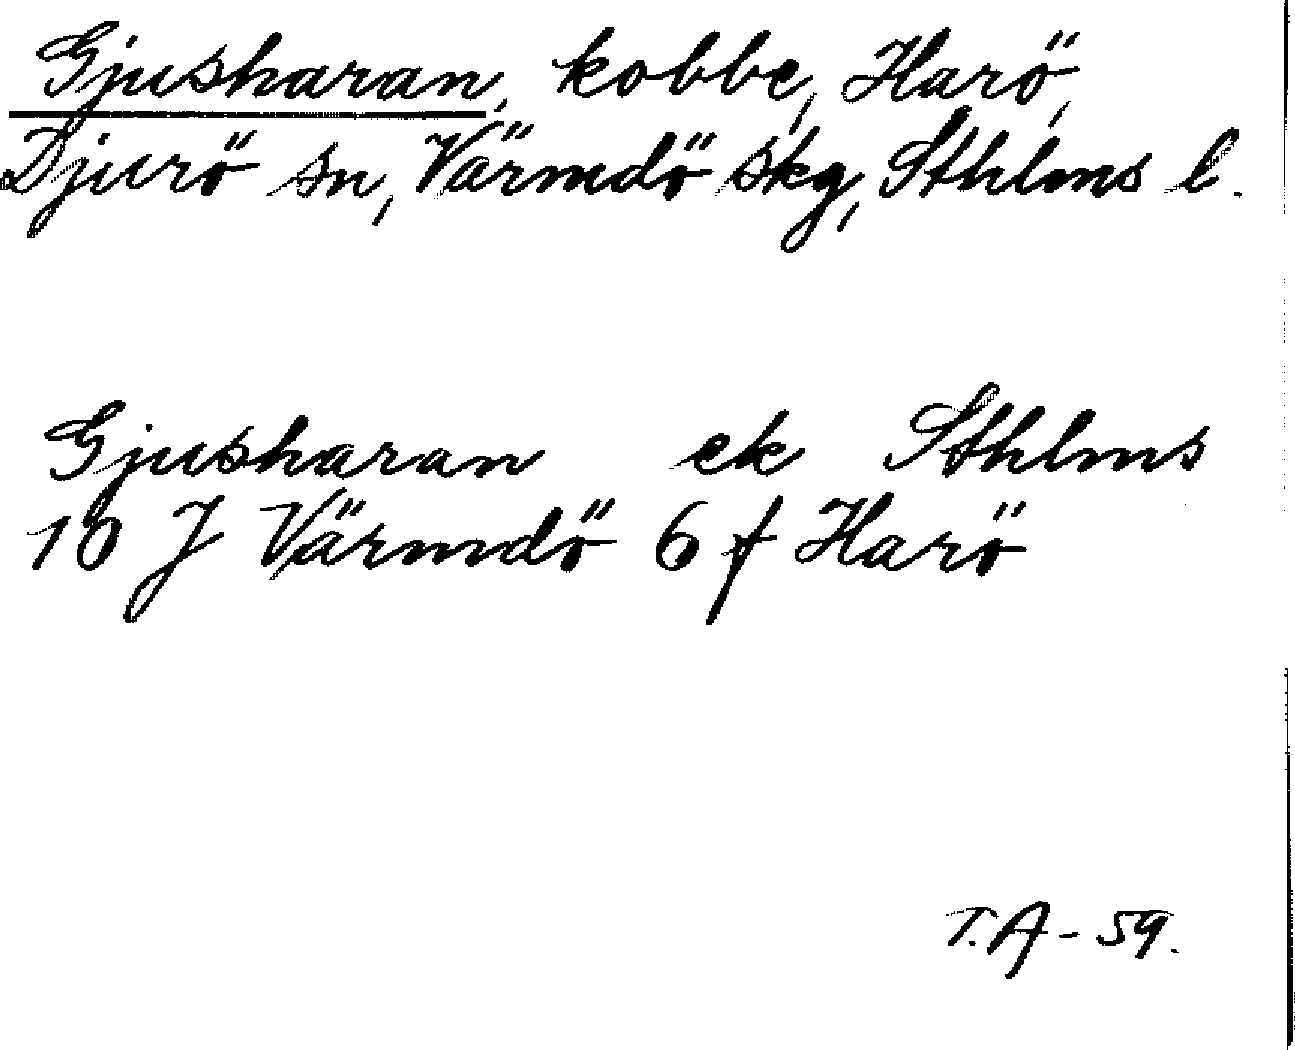 Gjusharan, kobbe, Harö,
Djurö sn, Värmdö skg, Sthlms l.
Gjusharan ek Sthlms
10 J Värmdö 6 f Harö
T.A - 59.